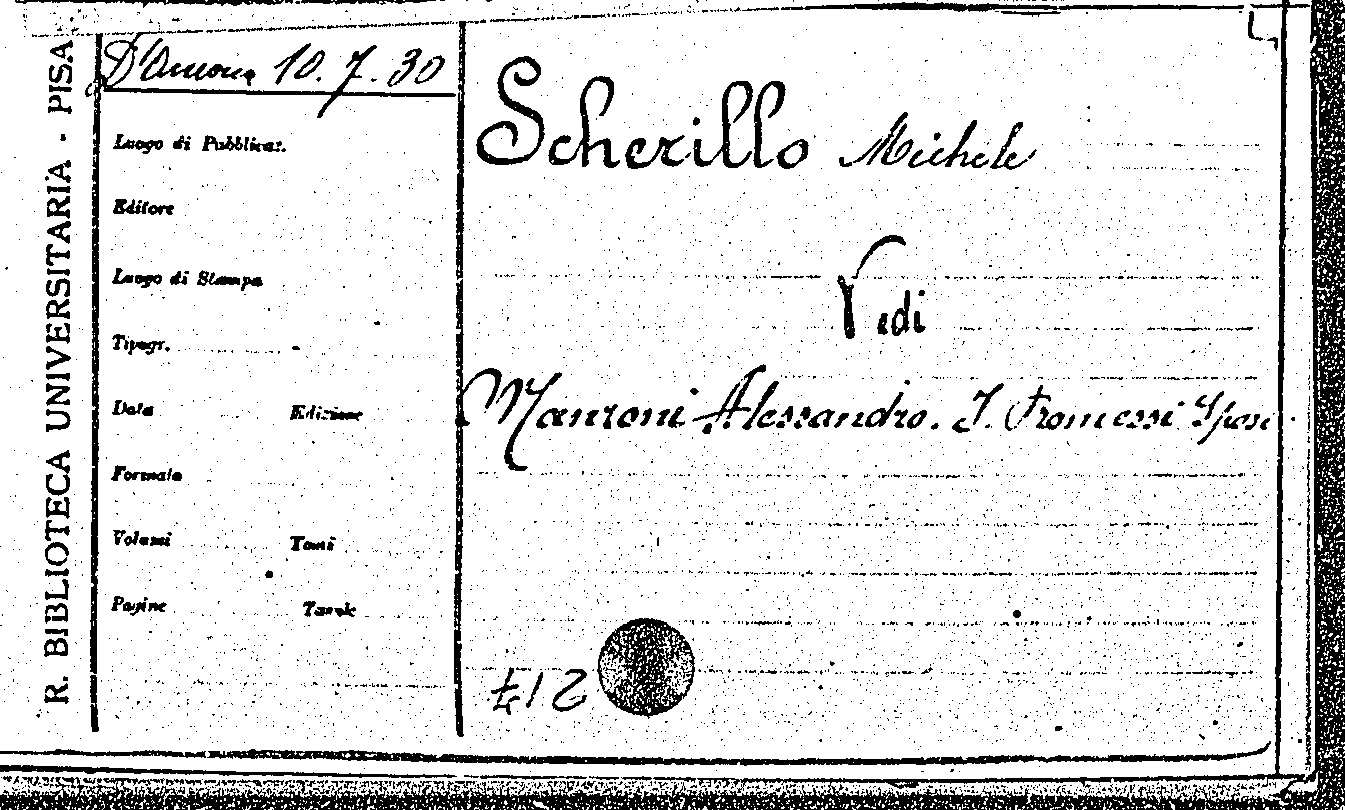 R. BIBLIOTECA UNIVERSITARIA - PISA
D'Ancona 10.7.30
Luogo di Pubblicaz.
Editore
Luogo di Stampa
Tipogr.
Data Edizione
Formato
Volumi Tomi
Pagine Tavole
Scherillo Michele
Vedi
Manzoni Alessandro. I. Promessi Sposi.
217